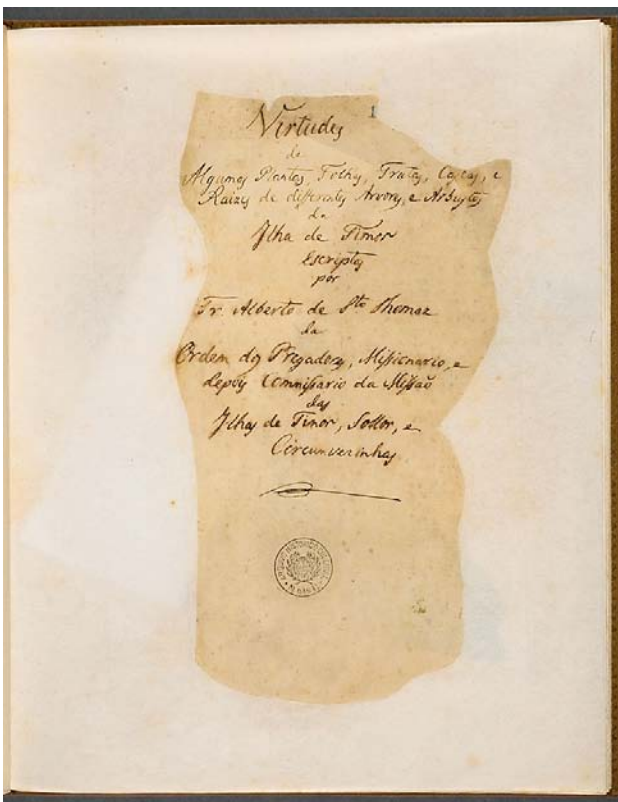 1
Virtudes
de
Algumas Plantas, Folhas, Frutas, Cascas, e
Raizes de differentes Arvores, e Arbustos
da
Ilha de Timor
Escriptas
por
Fr. Alberto de Sto Thomaz
da
Ordem dos Pregadores, Missionario, e
depois Commissario da Missaõ
das
Ilhas de Timor, Sollor, e
Circunvezinhas